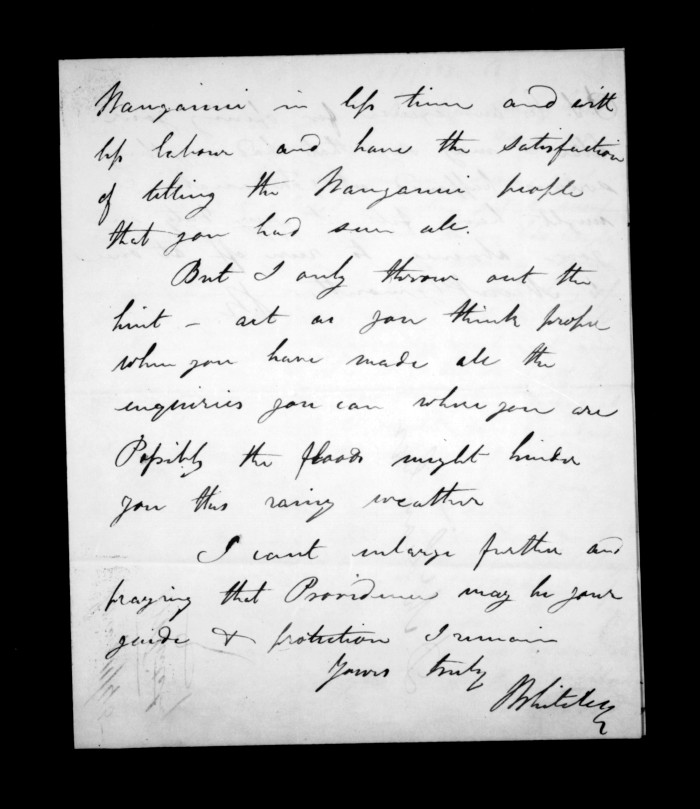 Wanganui in less time and with
less labour and have the satisfaction
of telling the Wanganui people
that you had seen all.
But I only throw out the
hint – act as you think proper
when you have made all the
enquiries you can where you are
Possibly the floods might hinder
you this rainy weather
I cant enlarge further and
praying that Providence may be your
guide & protection I remain
Yours truly
Whiteley